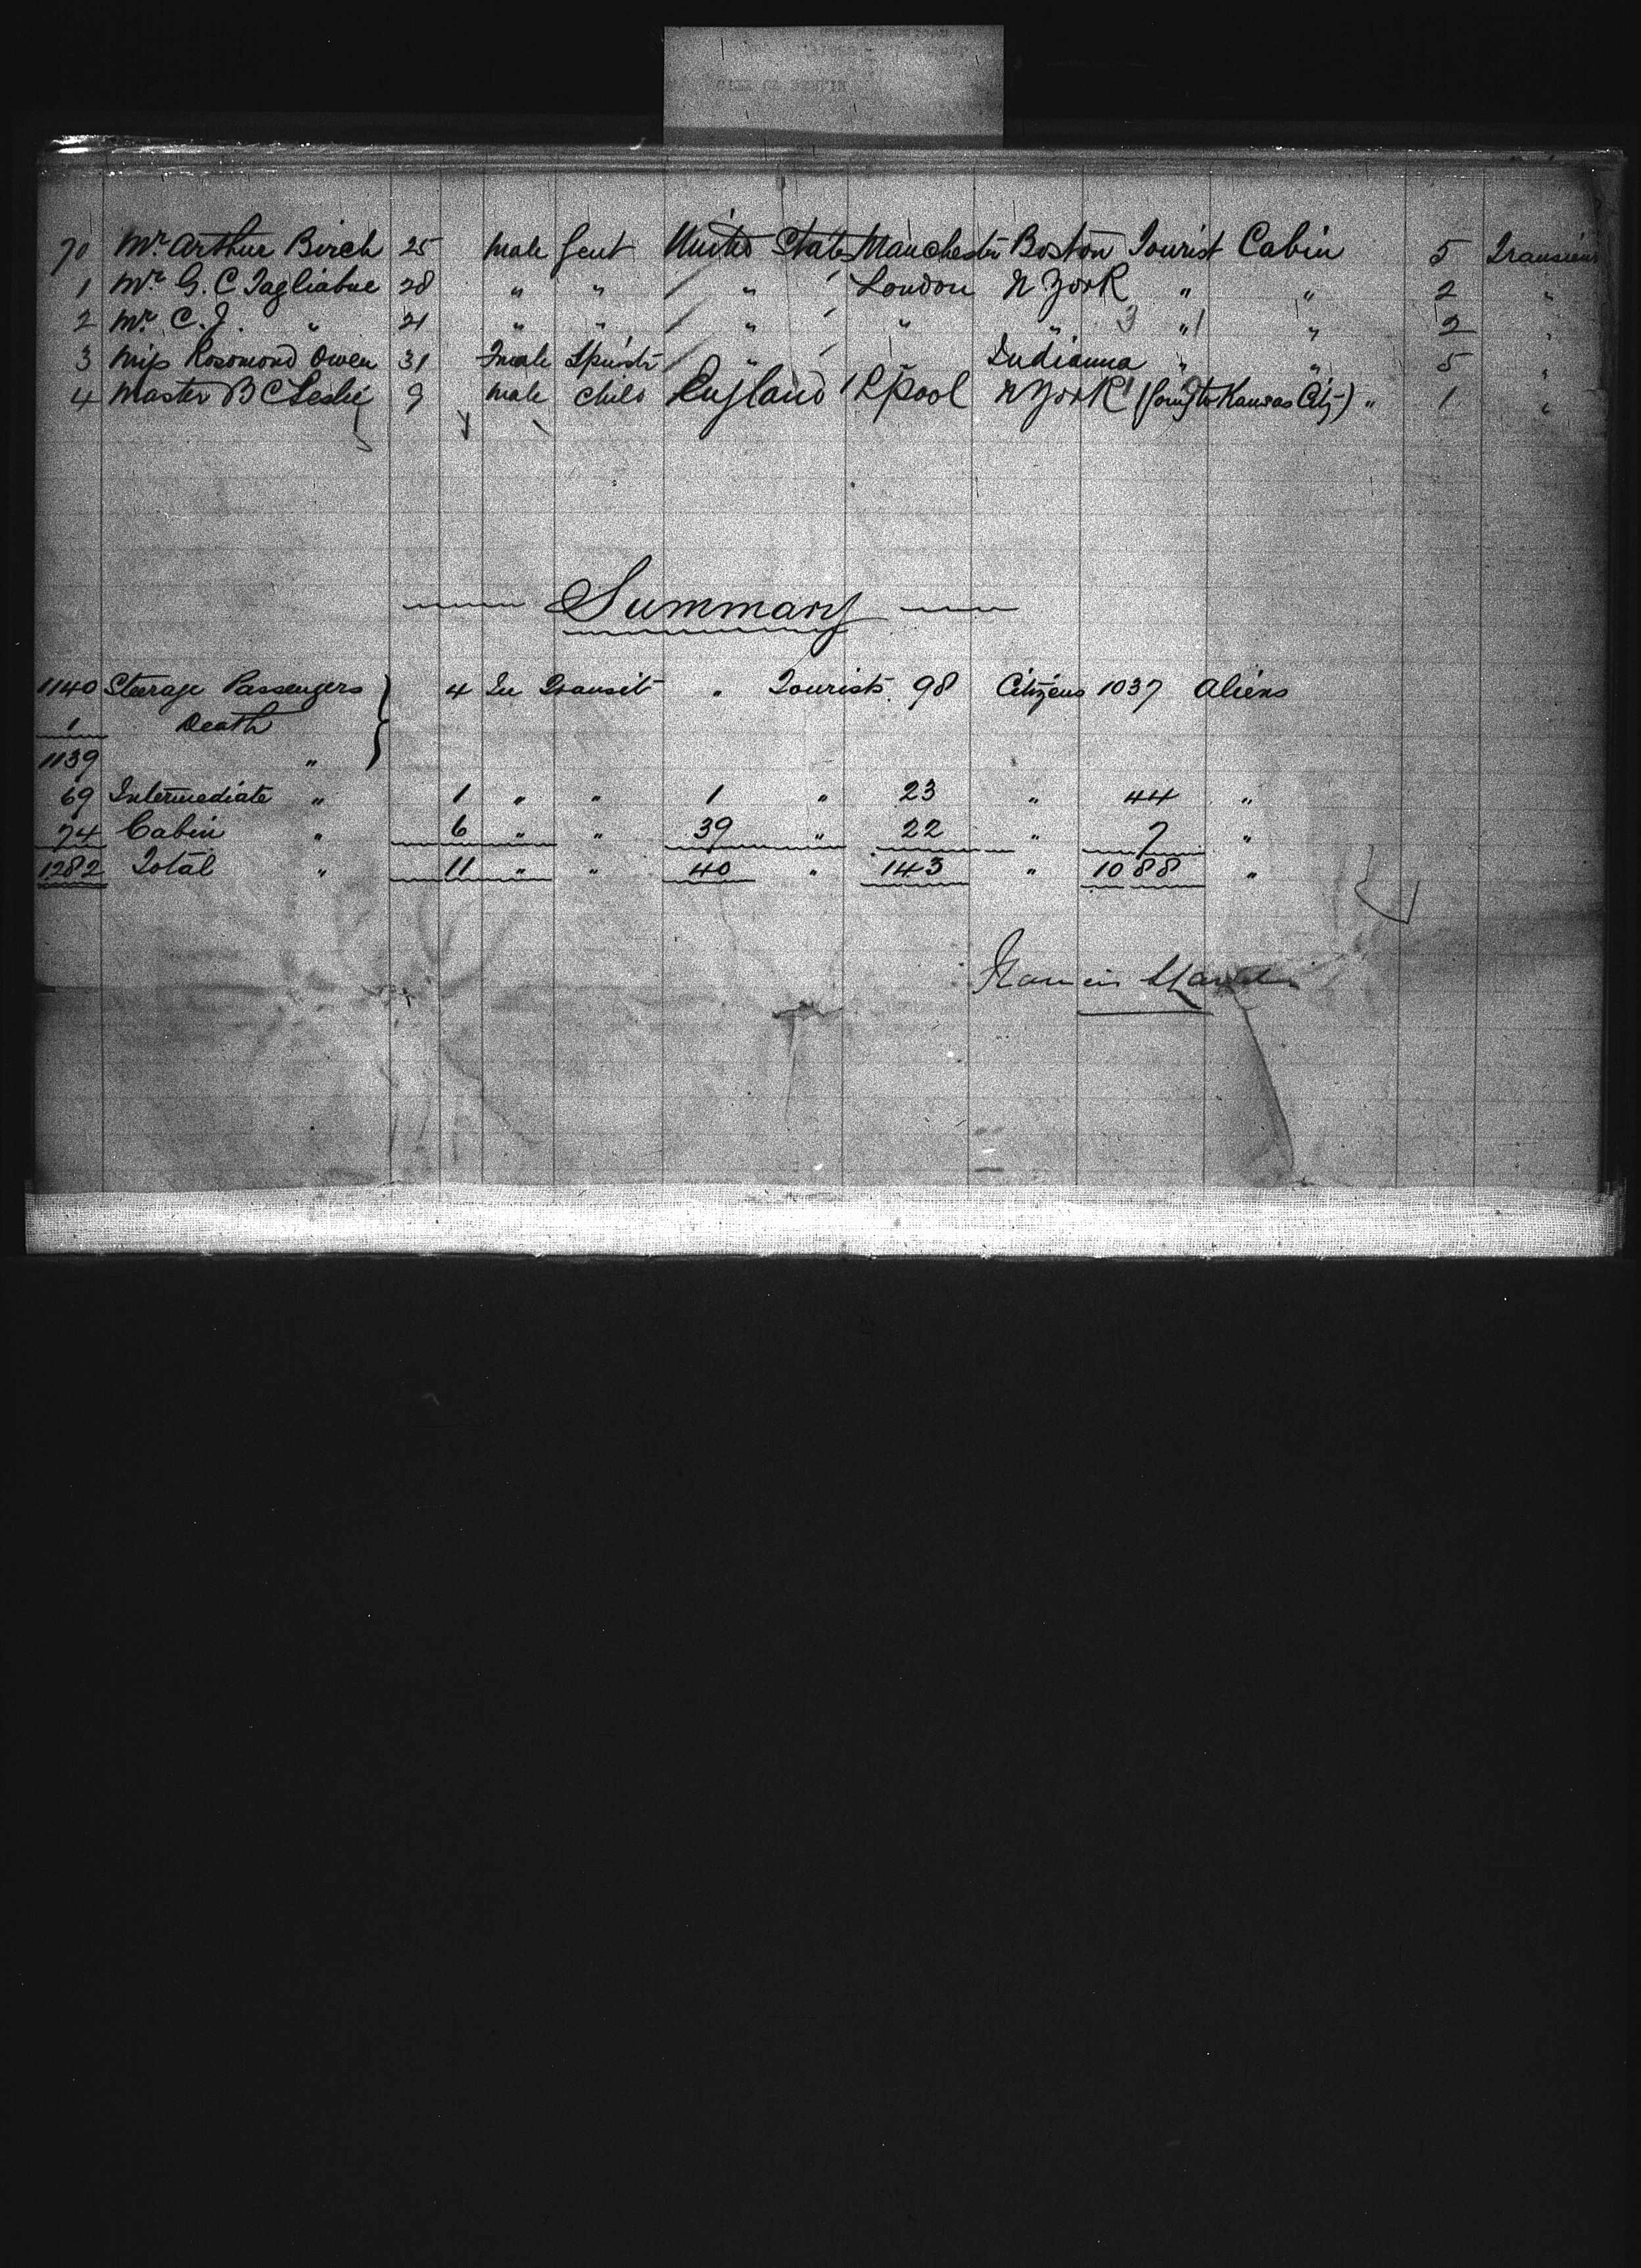 70 Mr. Arthur Birch 25 Male Gent United States Manchester Boston Tourist Cabin 5 Transient
1 Mr. G. C Tagliabue 28 " " " London N York " " 2 "
2 Mr. C. J. " 21 " " " " " " " 2 "
3 Miss Rosomond Owen 31 Fmale Spinstr " Indianna " " 5 "
4 Master B C Leslie 9 Male Child England Lpool N York (going to Kansas City) " 1 "
Summary
1140 Steerage Passengers 4 In Transit " Tourists 98 Citizens 1037 Aliens
1 Death
1139 "
69 Intermediate " 1 " " 1 " 23 " 44 "
74 Cabin " 6 " " 39 " 22 " 7 "
1282 Total " 11 " " 40 " 143 " 1088 "
Francis